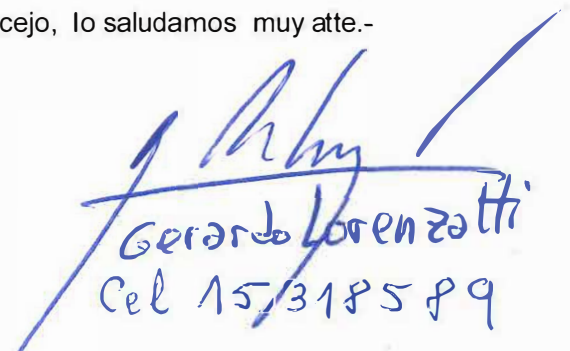 cejo, lo saludamos muy atte.-
Gerardo Lorenzatti
Cel 15318589